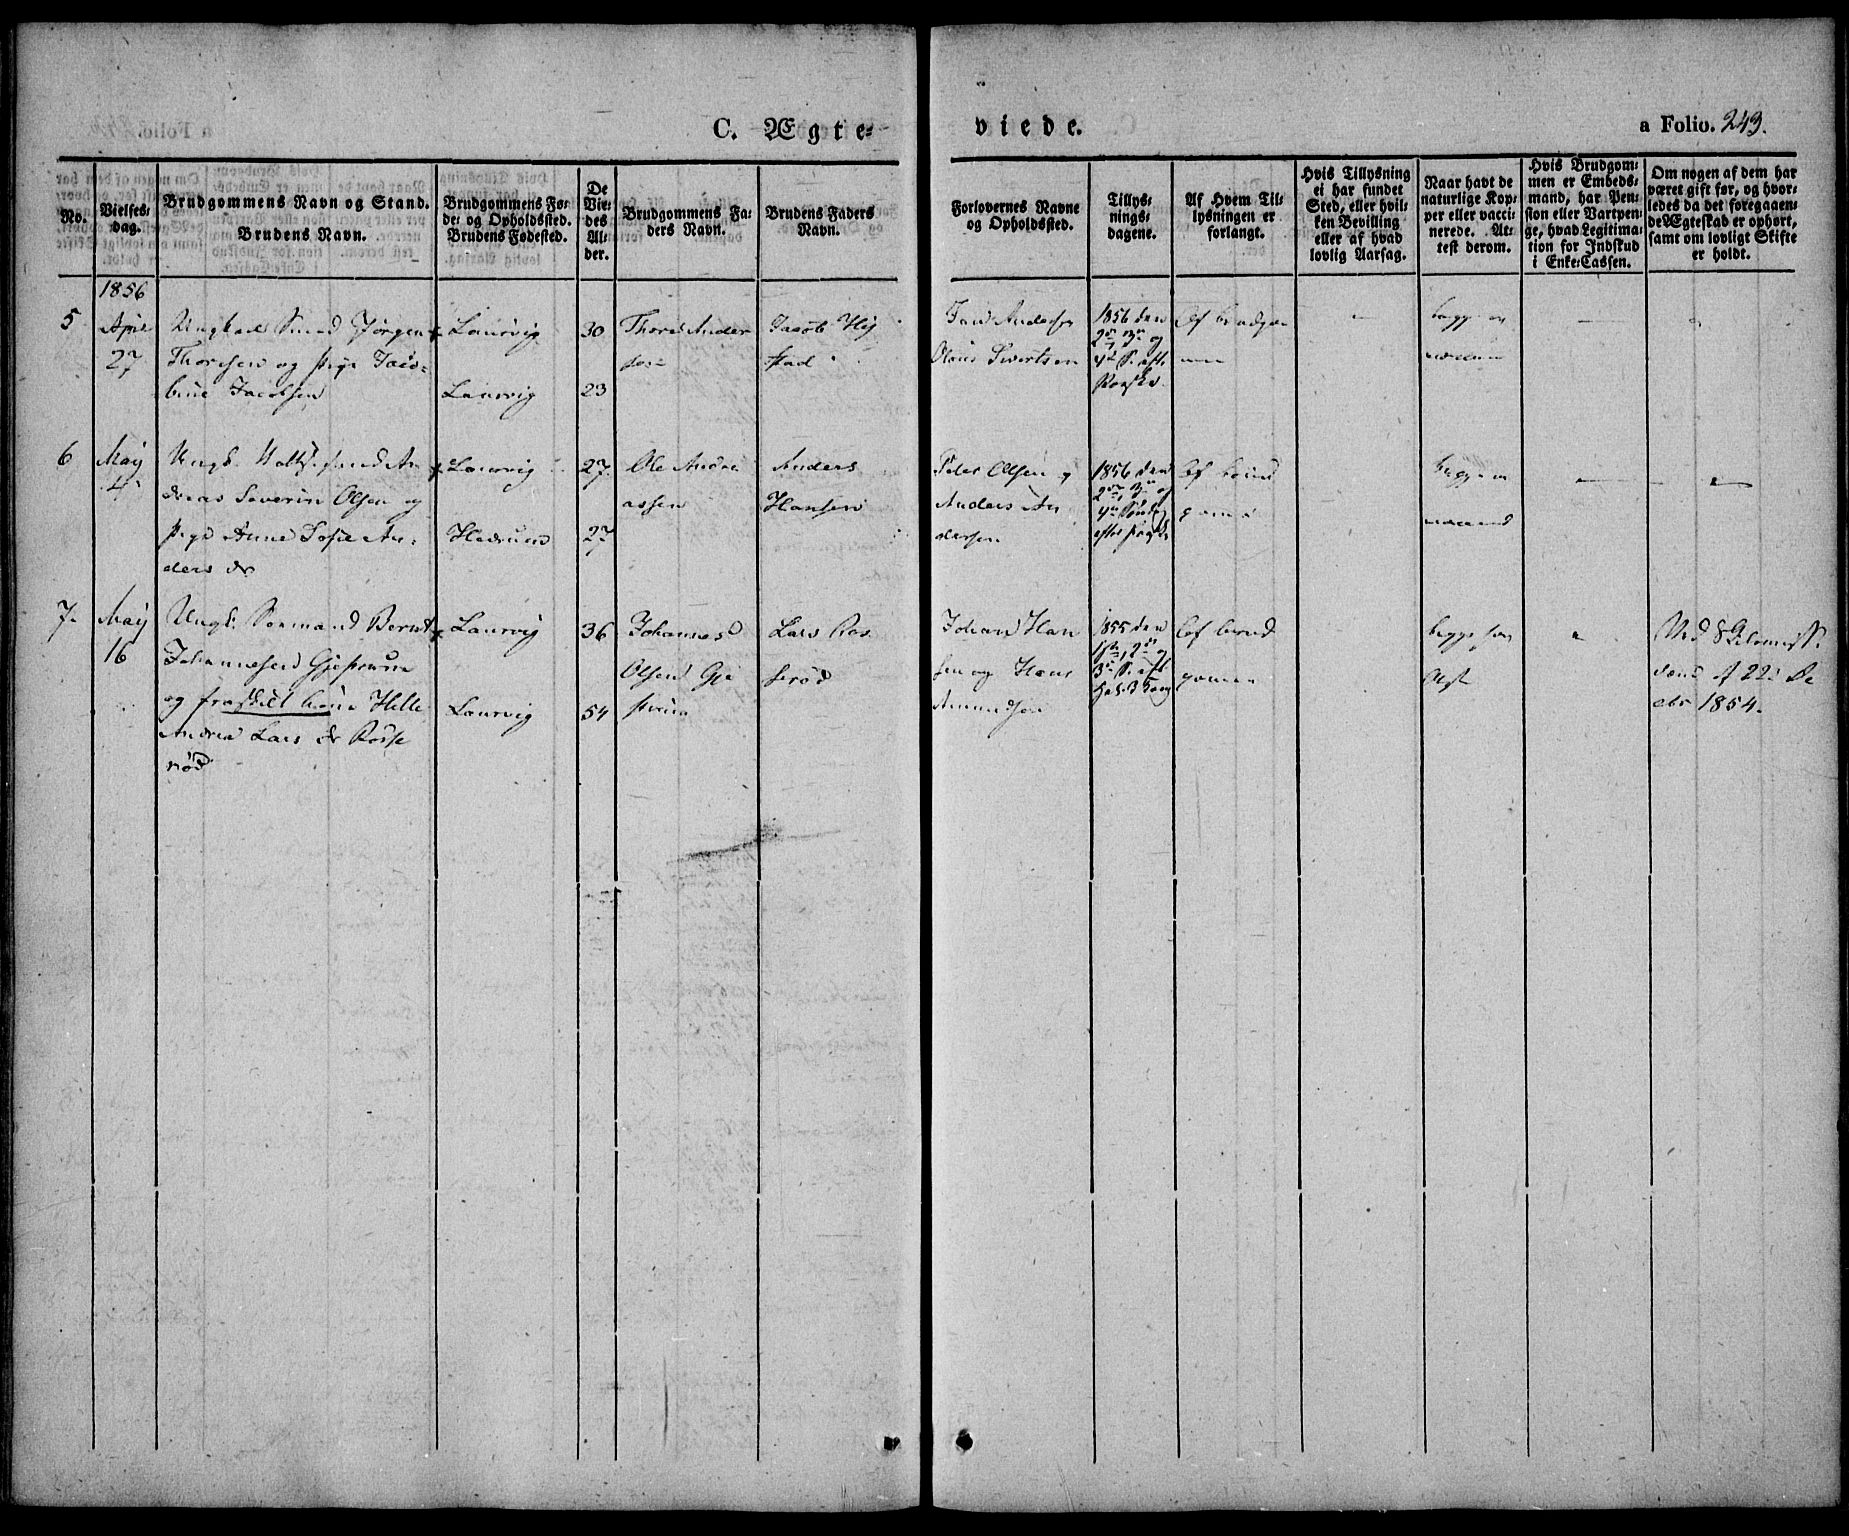 C. Ægte-
viede.
a Folio. 243.
No.
Vielses-
dag.
Brudgommens Navn og Stand.
Brudens Navn.
Brudgommens Fø-
de- og Opholdssted.
Brudens Fødested.
De
Vie-
des
Al-
der.
Brudgommens Fa-
ders Navn.
Brudens Faders
Navn.
Forlovernes Navne
og Opholdssted.
Tillys-
nings-
dagene.
Af Hvem Til-
lysningen er
forlangt.
Hvis Tillysning
ei har fundet
Sted, eller hvil-
ken Bevilling
eller af hvad
lovlig Aarsag.
Naar havt de
naturlige Kop-
per eller vacci-
nerede. At-
test derom.
Hvis Brudgom-
men er Embeds-
mand, har Pen-
sion eller Vartpen-
ge, hvad Legitima-
tion for Indskud
i Enke-Cassen.
Om nogen af dem har
været gift før, og hvor-
ledes da det foregaaen-
de Ægteskab er ophørt,
samt om lovligt Skifte
er holdt.
1856
5
April
27
Ungkarl Smed Jørgen
Thoresen og Pige Jaco-
bine Jacobsen
Laurvig
Laurvig
30
23
Thore Ander
sen
Jacob Hej
stad
Andersen
Olaus Sivertsen
1856 den
2den, 3die og
4de S. efter
Paaske.
Af brudgom
men
begge
vaccin
6
May
4
Ungk. An
dreas Severin Olsen og
Pige Anne Sofie An-
ders dr
Laurvig
Hedrum
27
27
Ole Andre
assen
Anders
Hansen
Peder Olsen og
Anders An
dersen
1856 den
2den, 3die og
4de Søndag
efter Paaske
Af brud
gom
begge
7
May
16
Ungk. Sømand Bernt
Johannesen
og fraskilt kone Helle
Andrea Lars dr Rosse
rød
Laurvig
Laurvig
36
54
Johannes
Olsen
Lars Ros
serød
Johan Han
sen og Hans
Amundsen
1855 den
1ste, 2den og
3die S. eft.
Af brud
gommen
begge
Attest
Ved
af 22 De
cbr 1854.